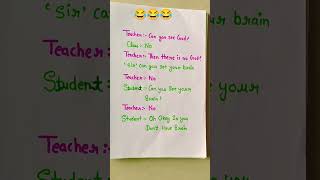 😂😂😂
Teacher:- Can you see God?
Class:- No
Teacher:- Then there is no God!
'Sir' can you see your brain
Teacher:- No
Student:- Can you see your
Brain?
Teacher:- No
Student:- Oh Okay So you
Don't Have Brain
Teacher:-